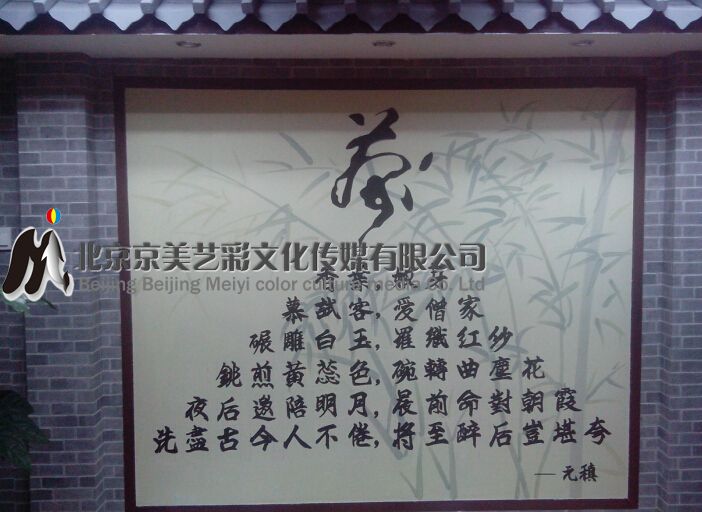 茶
北京京美艺彩文化传媒有限公司
Beijing Beijing Meiyi color cultural media Co. Ltd
慕 客，爱 僧 家
碾 雕 白 玉，羅 織 红 纱
銚 煎 黄 蕊 色，碗 轉 曲 塵 花
夜 后 邀 陪 明 月，晨 前 命 對 朝 霞
洗 盡 古 今 人 不 倦，将 至 醉 后 豈 堪 夸
—元稹